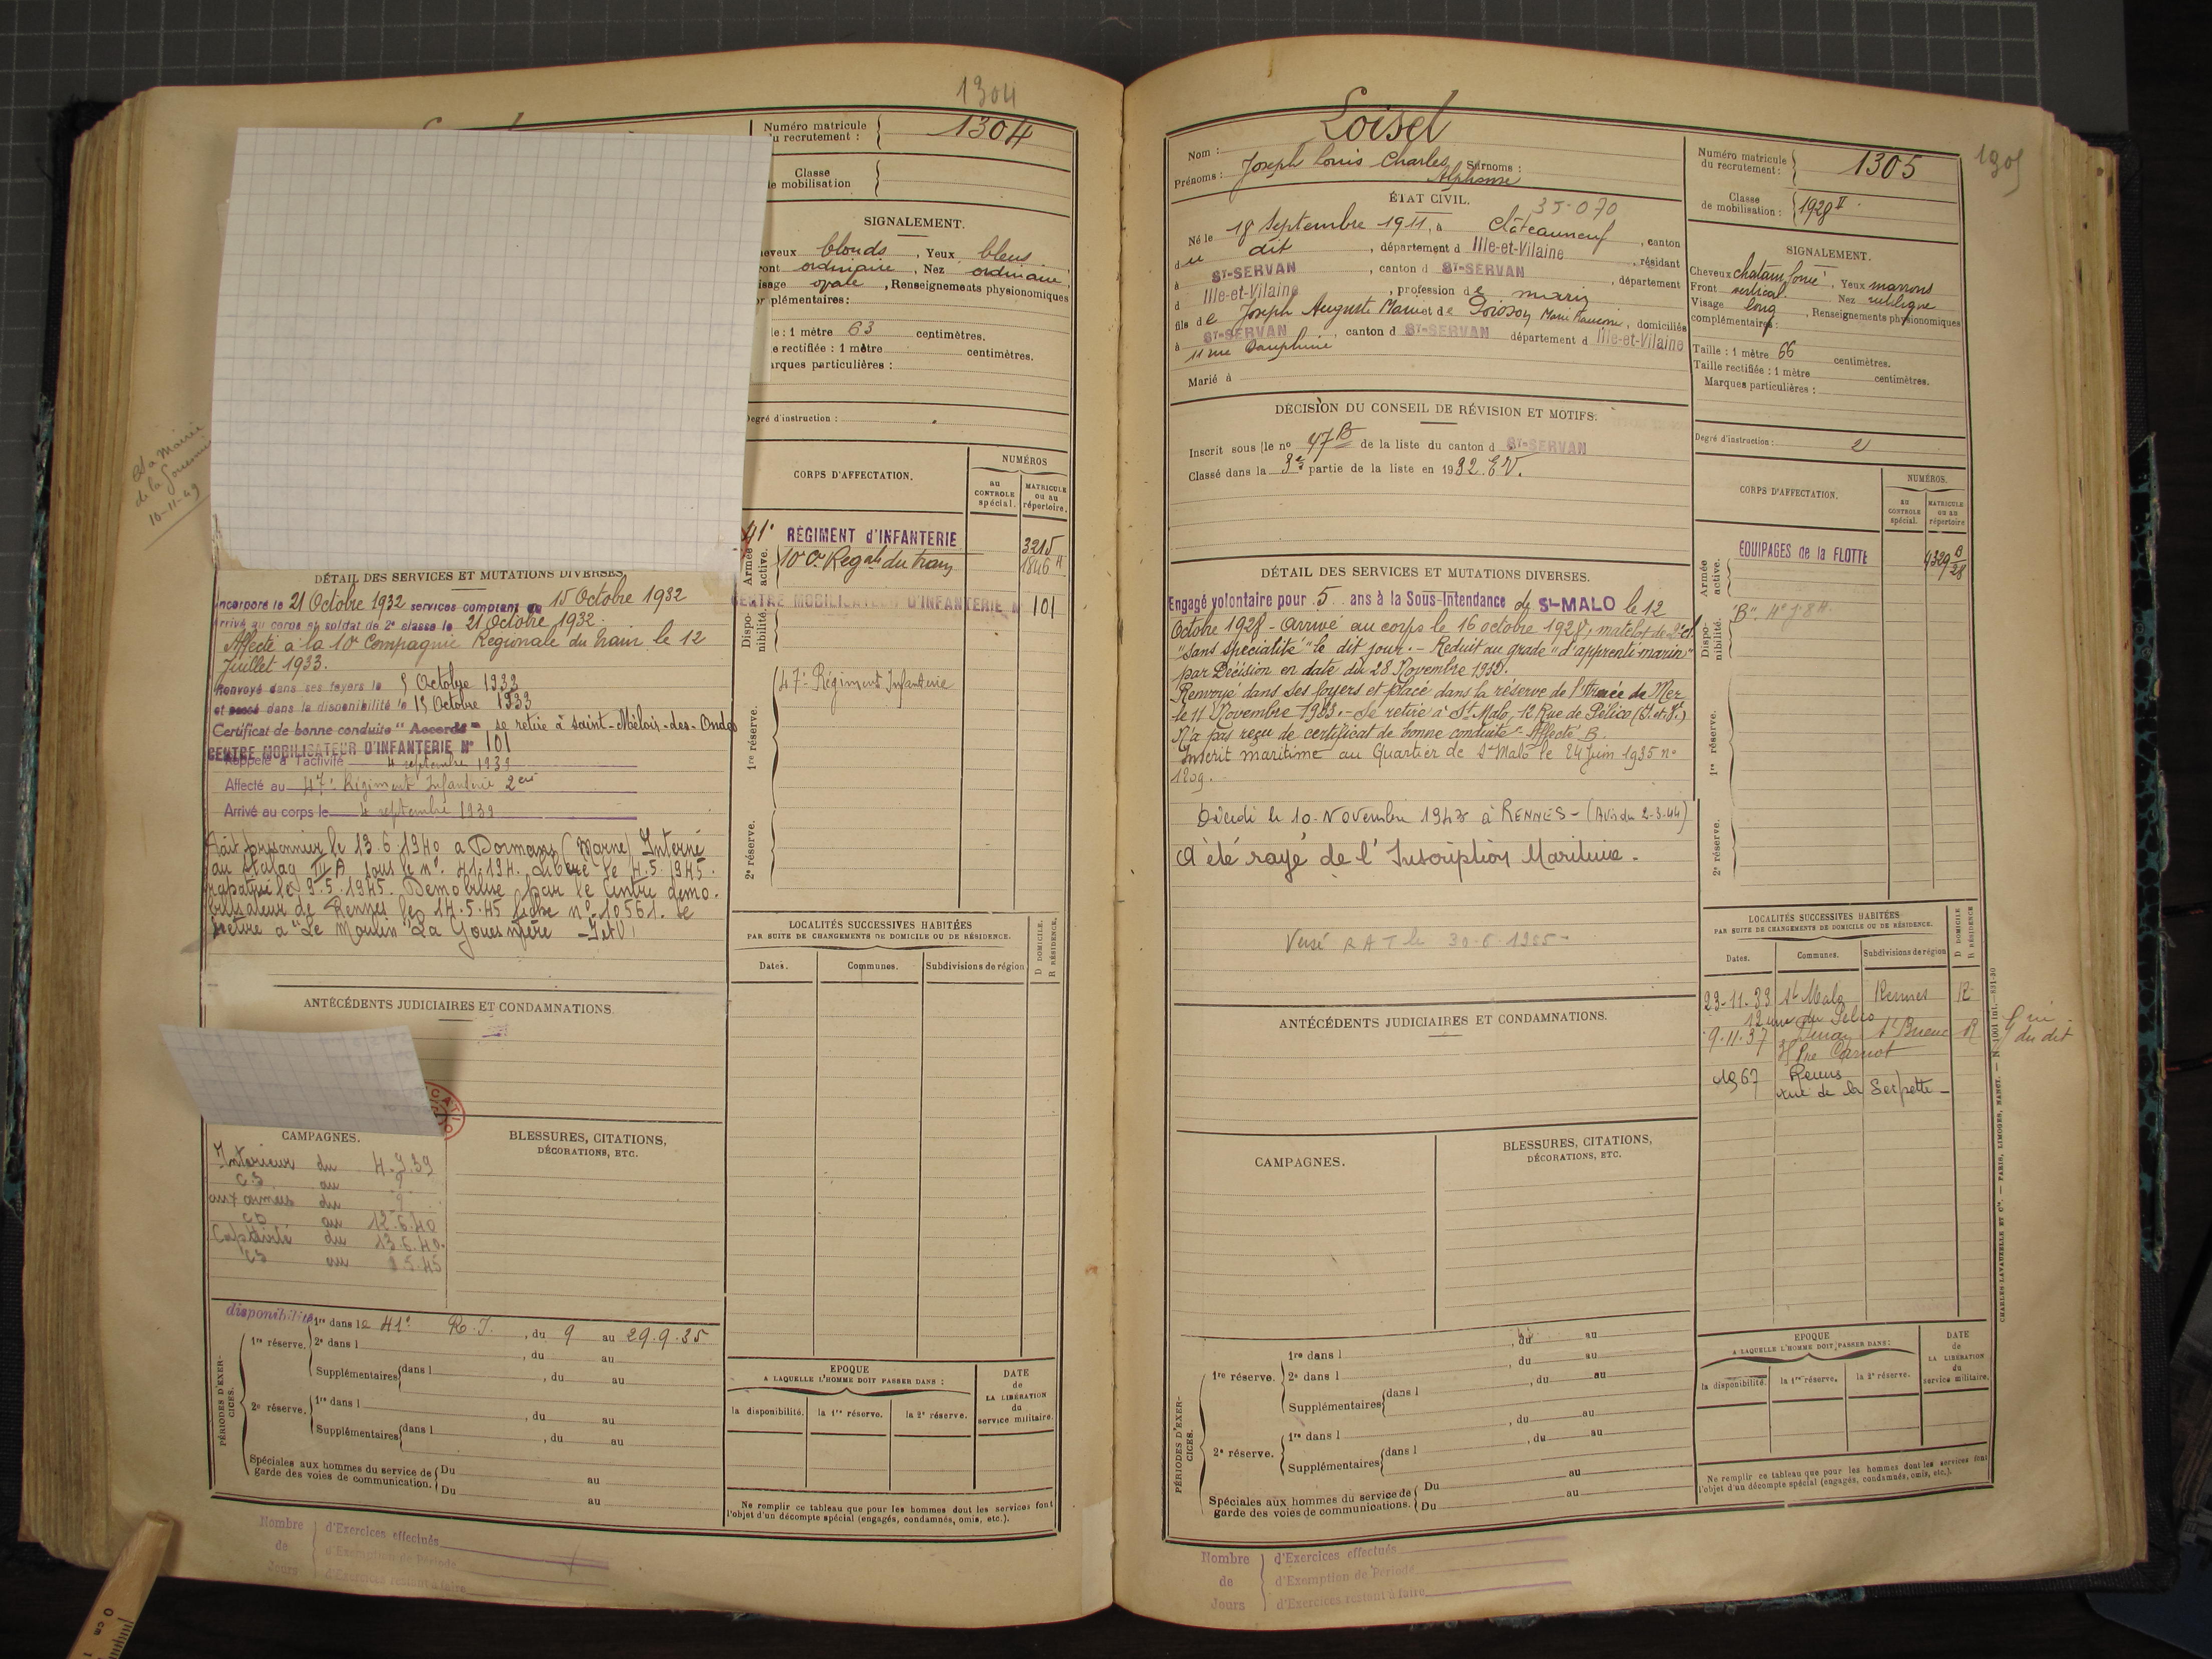 1304
Numéro matricule
du recrutement :
1304
Classe
de mobilisation
SIGNALEMENT.
cheveux blonds, Yeux bleus
front ordinaire, Nez ordinaire,
visage ovale, Renseignements physionomiques
complémentaires:
le : 1 mètre 63 centimètres.
e rectifiée : 1 mètre centimètres.
arques particulières :
Degré d'instruction :
CORPS D'AFFECTATION.
NUMÉROS
au CONTROLE spécial.
MATRICULE ou au répertoire.
Armée active.
41e RÉGIMENT d'INFANTERIE 3215
10e Cie Regale du train 1846
Disponibilité.
CENTRE MOBILISATEUR D'INFANTERIE N° 101
1re réserve.
47e Régiment Infanterie
2e réserve.
à Mairie
de la Gouesnière
10-11-49
DÉTAIL DES SERVICES ET MUTATIONS DIVERSES.
Incorporé le 21 Octobre 1932 services comptent du 15 Octobre 1932
Arrivé au corps et soldat de 2e classe le 21 Octobre 1932.
Affecté à la 10e Compagnie Régionale du train le 12
Juillet 1933.
Renvoyé dans ses foyers le 5 Octobre 1933
et passé dans la disponibilité le 15 Octobre 1933
Certificat de bonne conduite "Accordé" se retire à Saint-Méloir-des-Ondes
CENTRE MOBILISATEUR D'INFANTERIE N° 101
Rappelé à l'activité 4 septembre 1939
Affecté au 47e Régiment Infanterie
Arrivé au corps le 4 septembre 1939
Fait prisonnier le 13.6.1940 a Dormans (Marne) Interné
au Stalag III A sous le n° 41.194. Libéré le 4.5.1945.
rapatrié le 9.5.1945. Démobilisé par le Centre démo-
bilisateur de Rennes le 14.5.45 fiche n° 10561. Se
retire a "Le Moulin" La Gouesnière - I et V
ANTÉCÉDENTS JUDICIAIRES ET CONDAMNATIONS.
CAMPAGNES.
Intérieur du 4.9.39
au
aux armées du
au 12.6.40
Captivité du 13.6.40.
au 8.5.45
BLESSURES, CITATIONS,
DÉCORATIONS, ETC.
LOCALITÉS SUCCESSIVES HABITÉES
PAR SUITE DE CHANGEMENTS DE DOMICILE OU DE RÉSIDENCE.
Dates.
Communes.
Subdivisions de région
D DOMICILE.
R RÉSIDENCE.
EPOQUE
A LAQUELLE L'HOMME DOIT PASSER DANS :
la disponibilité.
la 1re réserve.
la 2e réserve.
DATE
de
LA LIBÉRATION
du
service militaire.
Ne remplir ce tableau que pour les hommes dont les services font
l'objet d'un décompte spécial (engagés, condamnés, omis, etc.).
PÉRIODES D'EXERCICES.
disponibilité
1re réserve.
1re dans le 41e R.I., du 9 au 29.9.35
2e dans l , du au
Supplémentaires dans l , du au
2e réserve.
1re dans l , du au
Supplémentaires dans l , du au
Spéciales aux hommes du service de
garde des voies de communication.
Du au
Du au
Nombre
de
Jours
d'Exercices effectués
d'Exemption de Période
d'Exercices restant à faire
Nom : Loisel
Prénoms : Joseph Louis Charles Alphonse
Surnoms :
Numéro matricule
du recrutement :
1305
1305
Classe
de mobilisation :
1928 II
ÉTAT CIVIL.
35-070
Né le 18 Septembre 1911, à Châteauneuf, canton
du dit, département d Ille-et-Vilaine, résidant
à ST-SERVAN, canton d ST-SERVAN, département
d Ille-et-Vilaine, profession de marin
fils de Joseph Auguste Marie et de Poisson Marie, domiciliés
à ST-SERVAN, canton d ST-SERVAN département d Ille-et-Vilaine
11 rue Dauphine
Marié à
SIGNALEMENT.
Cheveux chatain foncé, Yeux marrons
Front vertical. Nez rectiligne
Visage long, Renseignements physionomiques
complémentaires :
Taille : 1 mètre 66 centimètres.
Taille rectifiée : 1 mètre centimètres.
Marques particulières :
Degré d'instruction : 2
DÉCISION DU CONSEIL DE RÉVISION ET MOTIFS.
Inscrit sous le n° 47 B de la liste du canton d ST-SERVAN
Classé dans la 3e partie de la liste en 1932. E.V.
CORPS D'AFFECTATION.
NUMÉROS.
au CONTROLE spécial.
MATRICULE ou au répertoire
Armée active.
EQUIPAGES de la FLOTTE 4329 B 28
Disponibilité.
"B"
1re réserve.
2e réserve.
DÉTAIL DES SERVICES ET MUTATIONS DIVERSES.
Engagé volontaire pour 5 ans à la Sous-Intendance de St-MALO le 12
Octobre 1928 - Arrivé au corps le 16 octobre 1928, matelot de 2e cl.
"Sans spécialité" le dit jour. - Réduit au grade "d'apprenti marin"
par Décision en date du 28 Novembre 1932.
Renvoyé dans ses foyers et placé dans la réserve de l'Armée de Mer
le 11 Novembre 1933. - Se retire à St Malo, 12 Rue de Pélico (I. et V.)
N'a pas reçu de certificat de bonne conduite - Affecté B.
Inscrit maritime au Quartier de St Malo le 24 Juin 1935 n°
1209.
Décédé le 10 Novembre 1943 à RENNES - (Avis du 2-3-44)
A été rayé de l'Inscription Maritime.
Versé R A T le 30-6-1955
ANTÉCÉDENTS JUDICIAIRES ET CONDAMNATIONS.
CAMPAGNES.
BLESSURES, CITATIONS,
DÉCORATIONS, ETC.
LOCALITÉS SUCCESSIVES HABITÉES
PAR SUITE DE CHANGEMENTS DE DOMICILE OU DE RÉSIDENCE.
Dates.
Communes.
Subdivisions de région
D DOMICILE
R RÉSIDENCE
23-11-33 St Malo Rennes R
12 rue du Pélico
9-11-37 Dinan St Brieuc R
Rue Carnot
du dit
1967 Reims
rue de la Serpette -
EPOQUE
A LAQUELLE L'HOMME DOIT PASSER DANS :
la disponibilité.
la 1re réserve.
la 2e réserve.
DATE
de
LA LIBÉRATION
du
service militaire.
Ne remplir ce tableau que pour les hommes dont les services font
l'objet d'un décompte spécial (engagés, condamnés, omis, etc.).
CHARLES-LAVAUZELLE ET Cie. — PARIS, LIMOGES, NANCY.
PÉRIODES D'EXERCICES.
1re réserve.
1re dans l , du au
2e dans l , du au
Supplémentaires dans l , du au
2e réserve.
1re dans l , du au
Supplémentaires dans l , du au
Spéciales aux hommes du service de
garde des voies de communications.
Du au
Du au
Nombre
de
Jours
d'Exercices effectués
d'Exemption de Période
d'Exercices restant à faire
0 cm 1